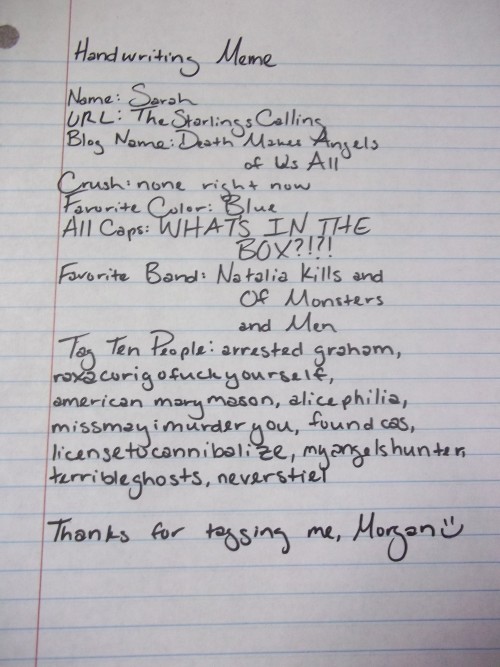 Handwriting Meme
Name: Sarah
URL: The Starlings Calling
Blog Name: Death Makes Angels
of Us All
Crush: none right now
Favorite Color: Blue
All Caps: WHATS IN THE
BOX?!?!
Favorite Band: Natalia Kills and
Of Monsters
and Men
Tag Ten People: arrested graham,
roxacorigofuckyourself,
american marymason, alicephilia,
missmayimurderyou, foundcas,
licensetocannibalize, myangelshunter,
terribleghosts, neverstiel
Thanks for tagging me, Morgan☺